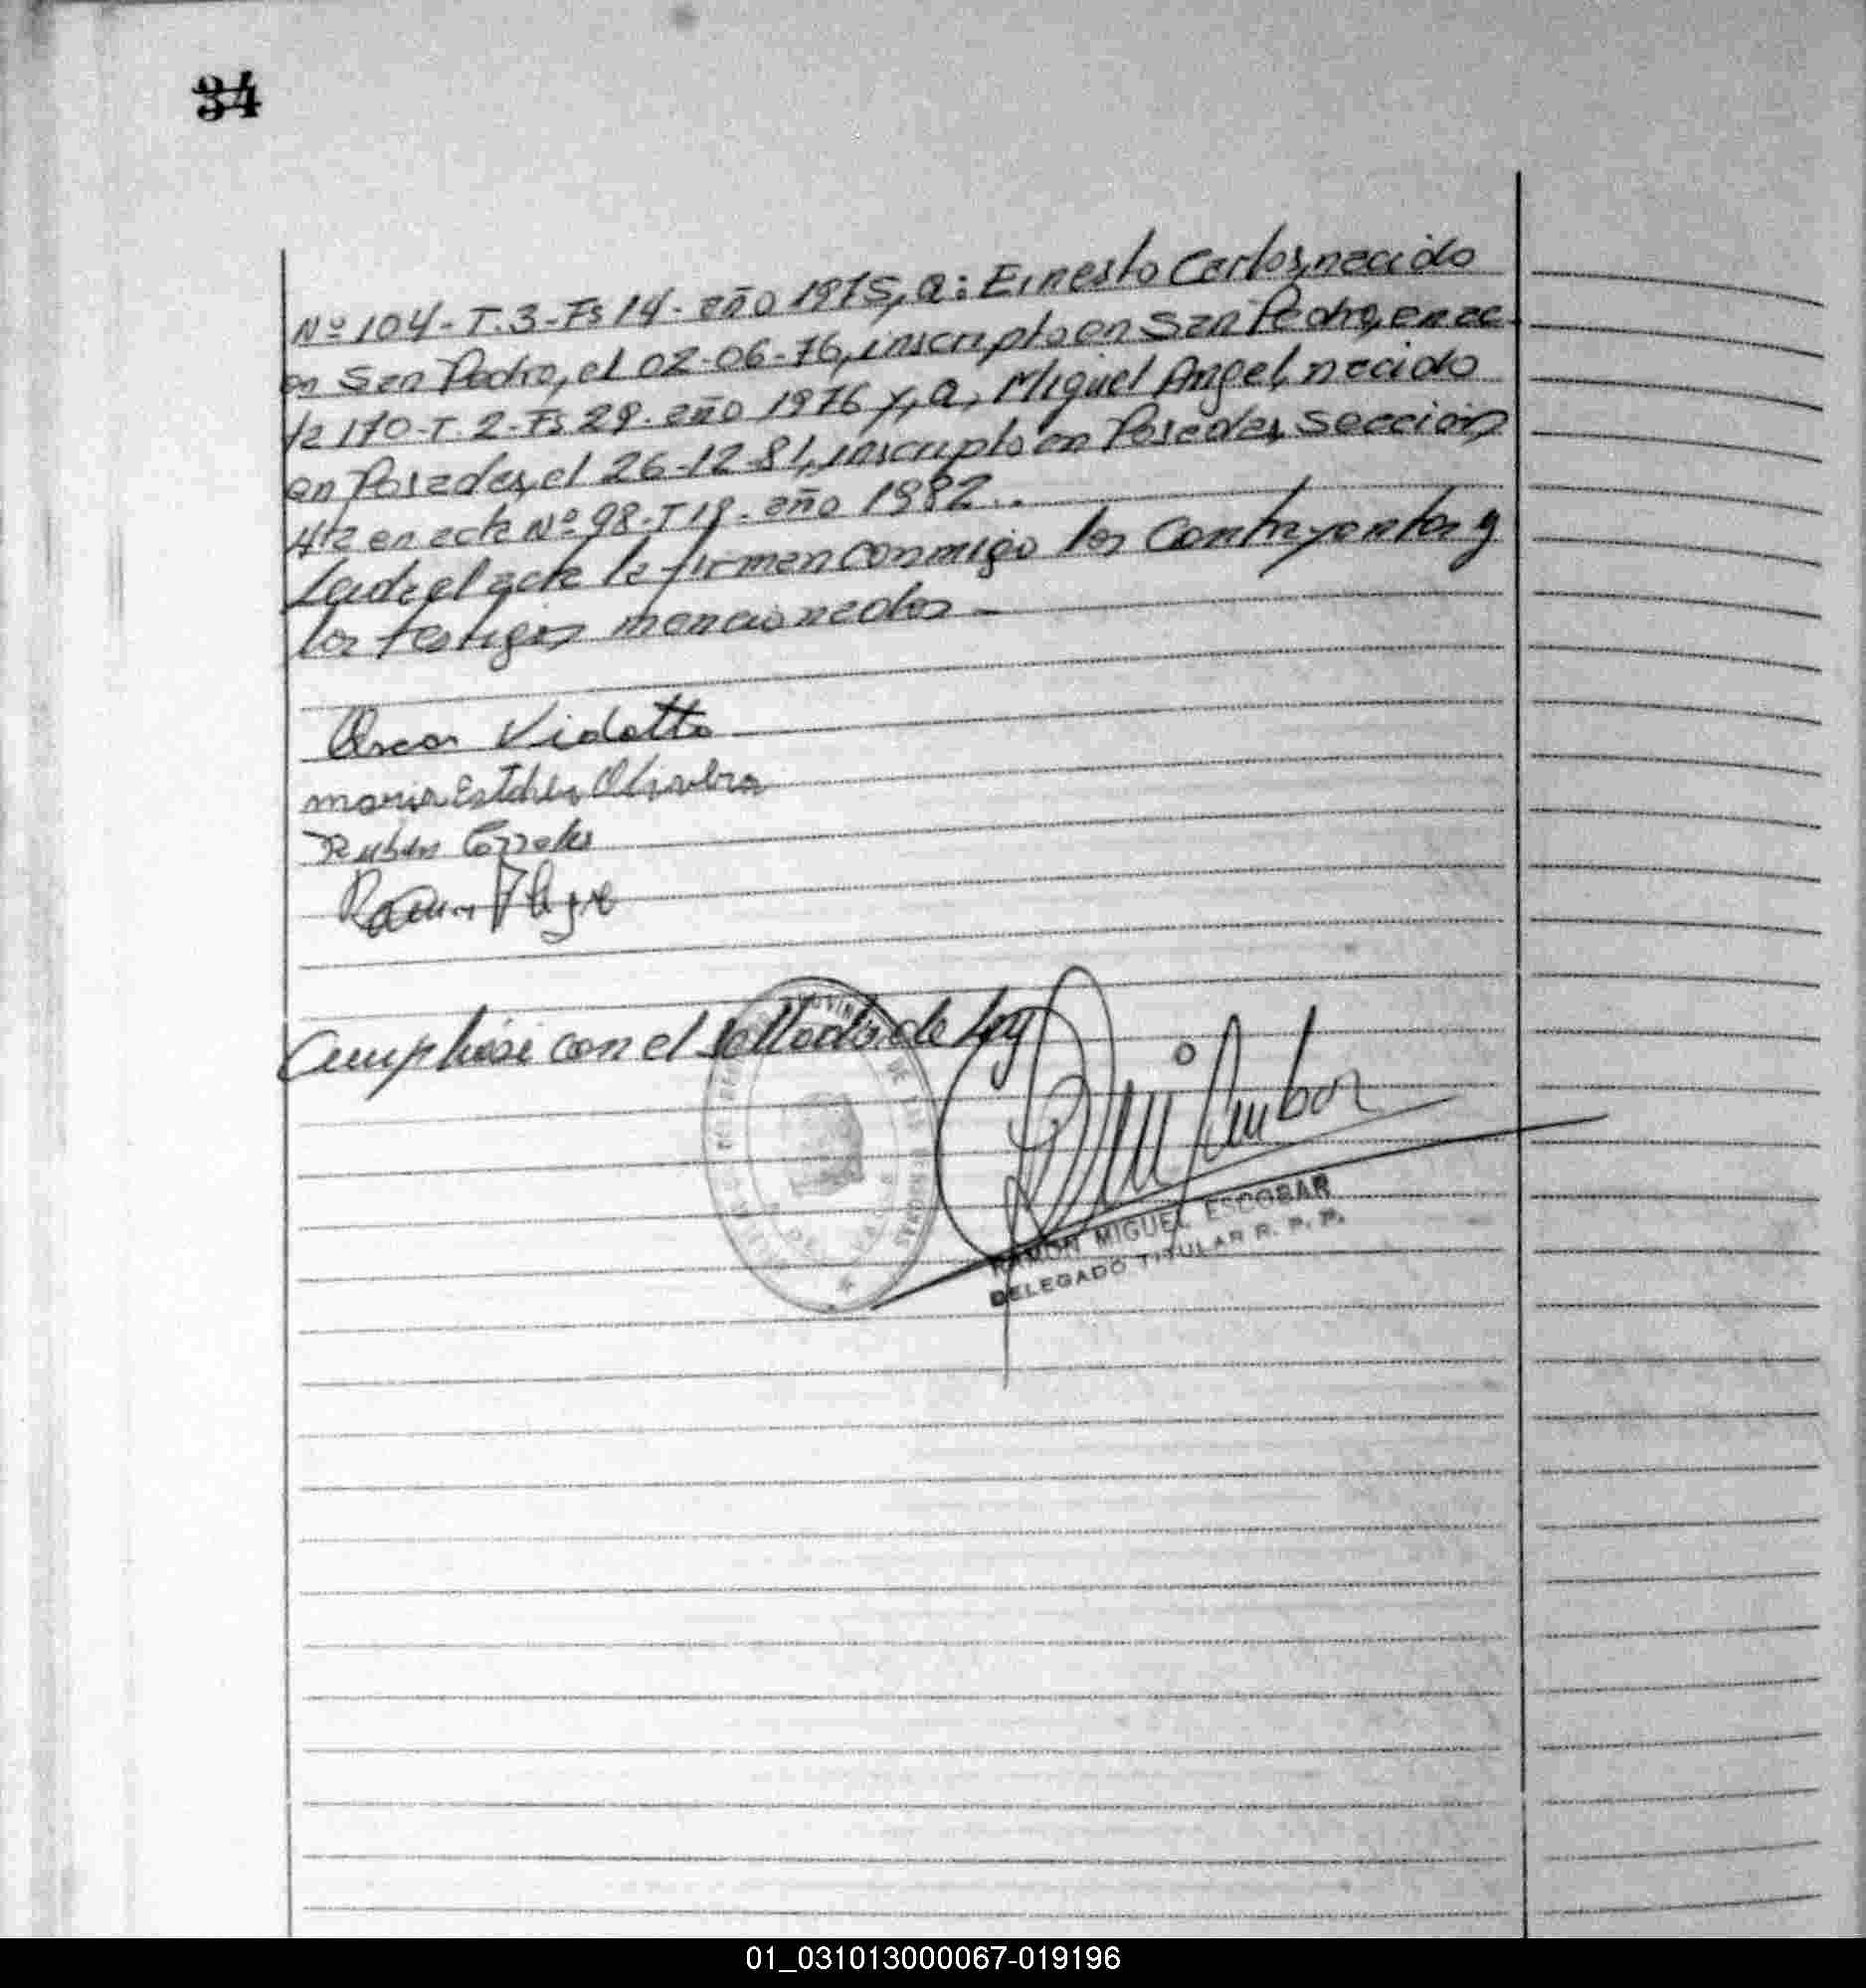 34
Nº 104-T.3-Fs 14- año 1975, a: Ernesto Carlos, nacido
en San Pedro, el 02-06-76, inscripto en San Pedro, en ac-
ta 170-T.2-Fs 29- año 1976 y, a, Miguel Angel, nacido
en Posadas, el 26-12-81, inscripto en Posadas, sección
4ta en acta Nº 98-T 1º- año 1982..
Leida el acta la firman conmigo los contrayentes y
los testigos mencionados-
Oscar Vidotto
maria Esther Olivera
Ruben
Ramon
Cumpliose con el sellado de Ley
PROVIN DE LAS PERSONAS
RAMON MIGUEL ESCOBAR
DELEGADO TITULAR R. P. P.
01_031013000067-019196